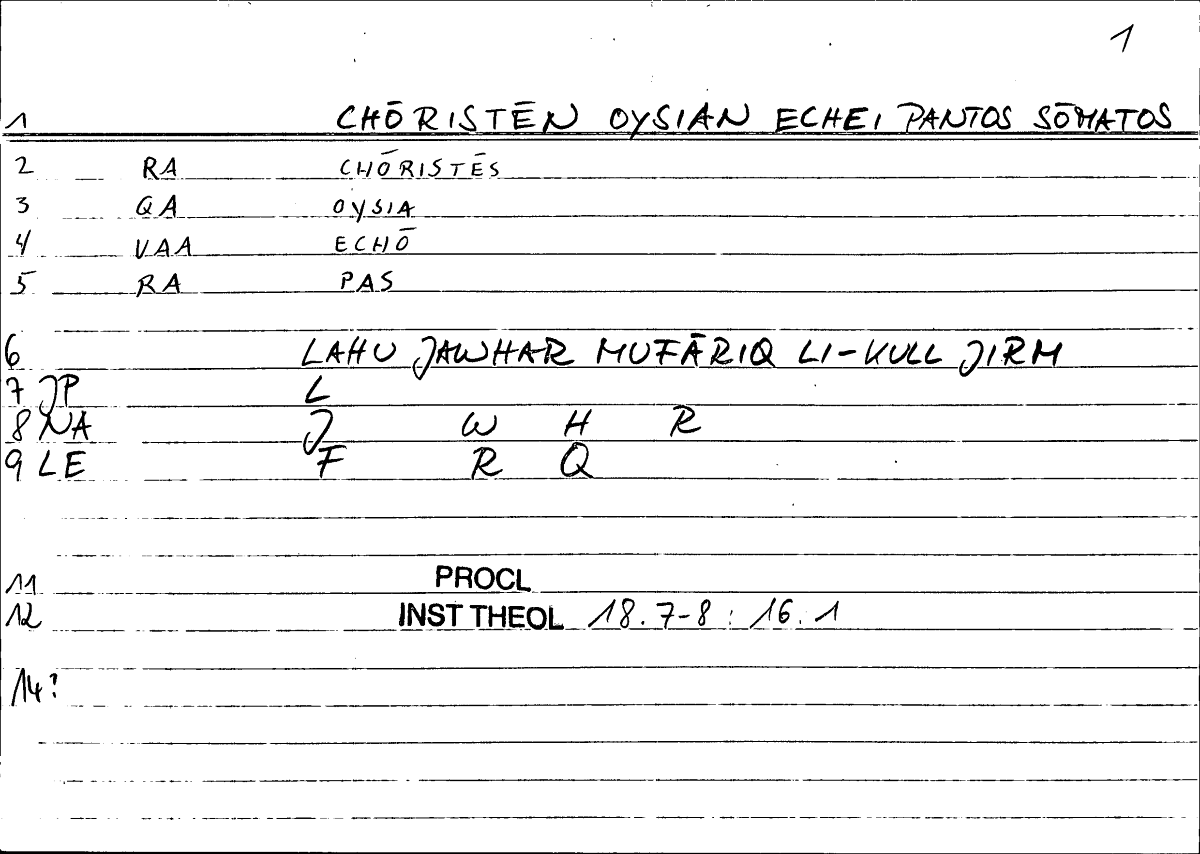 1
1 CHŌRISTĒN OYSIAN ECHEI PANTOS SŌMATOS
2 RA CHŌRISTĒS
3 QA OYSIA
4 VAA ECHŌ
5 RA PAS
6 LAHU JAWHAR MUFĀRIQ LI-KULL JIRM
7 JP L
8 NA J W H R
9 LE F R Q
11 PROCL
12 INST THEOL 18.7-8 : 16.1
14?